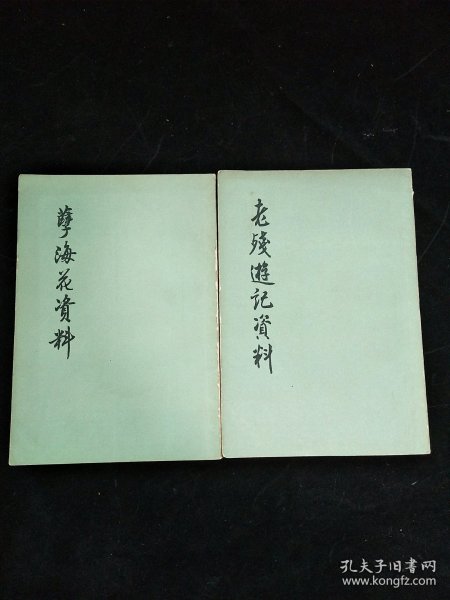 孽海花资料
老殘遊記資料
孔夫子旧书网
www.kongfz.com